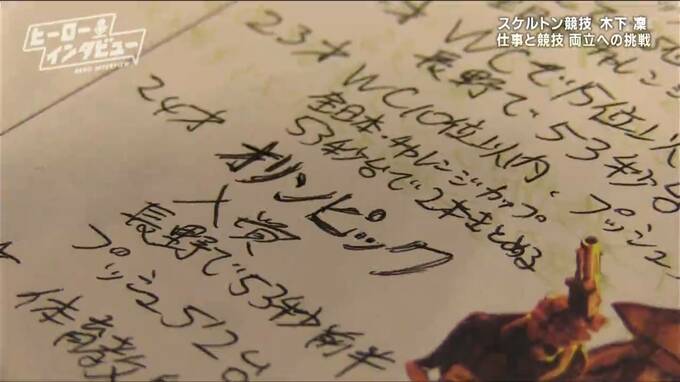 ヒーロー
インタビュー
HERO INTERVIEW
スケルトン競技 木下 凜
仕事と競技 両立への挑戦
WCで15位以
長野で、53秒台
23才 WC10位以内、プッシュ
全日本・チャレンジカップ
53秒台で2本まとめる
24才
オリンピック
入賞
長野で53秒前半
プッシュ5"12台
体育教